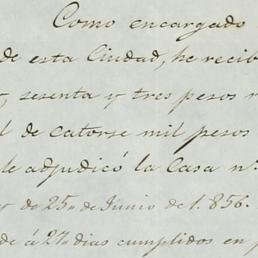 Como encargado
de esta Ciudad, he recib
sesenta y tres pesos
l de catorse mil pesos
le adjudicó la Casa nº.
y de 25,, de Junio de 1.856.
de á 27,, dias cumplidos en p